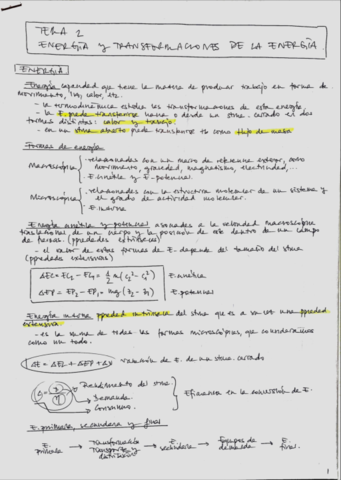 TEMA 2
ENERGÍA y TRANSFORMACIONES DE LA ENERGÍA.
ENERGÍA
Energía capacidad que tiene la materia de producir trabajo en forma de
movimiento, luz, calor, etc.
- la termodinámica estudia las transformaciones de esta energía
- la E puede transferirse hacia o desde un stma. cerrado en dos
formas distintas: calor y trabajo.
- en un stma abierto puede transferirse E como flujo de masa
Formas de energía
Macroscópica
- relacionadas con un marco de referencia exterior, como
movimiento, gravedad, magnetismo, electricidad, ...
- E. cinética y E. potencial.
Microscópica
- relacionadas con la estructura molecular de un sistema y
el grado de actividad molecular.
- E. interna
Energía cinética y potencial asociadas a la velocidad macroscópica
traslacional de un cuerpo y la posición de este dentro de un campo
de fuerzas. (ppedades extrínsecas)
- el valor de estas formas de E. depende del tamaño del stma
(ppedades extensivas)
ΔEc = Ec2 - Ec1 = 1/2 m (c2² - c1²) E. cinética
ΔEP = EP2 - EP1 = mg (z2 - z1) E. potencial
Energía interna ppedad intrínseca del stma que es a su vez una ppedad
extensiva
- es la suma de todas las formas microscópicas, que consideramos
como un todo.
ΔE = ΔEc + ΔEP + ΔU variación de E. de un stma cerrado
Rendimiento del stma.
Demanda
Consumo.
Eficiencia en la conversión de E.
E. primaria, secundaria y final
E. primaria → Transformación transporte y distribución → E. secundaria → Equipos de demanda → E. final.
1